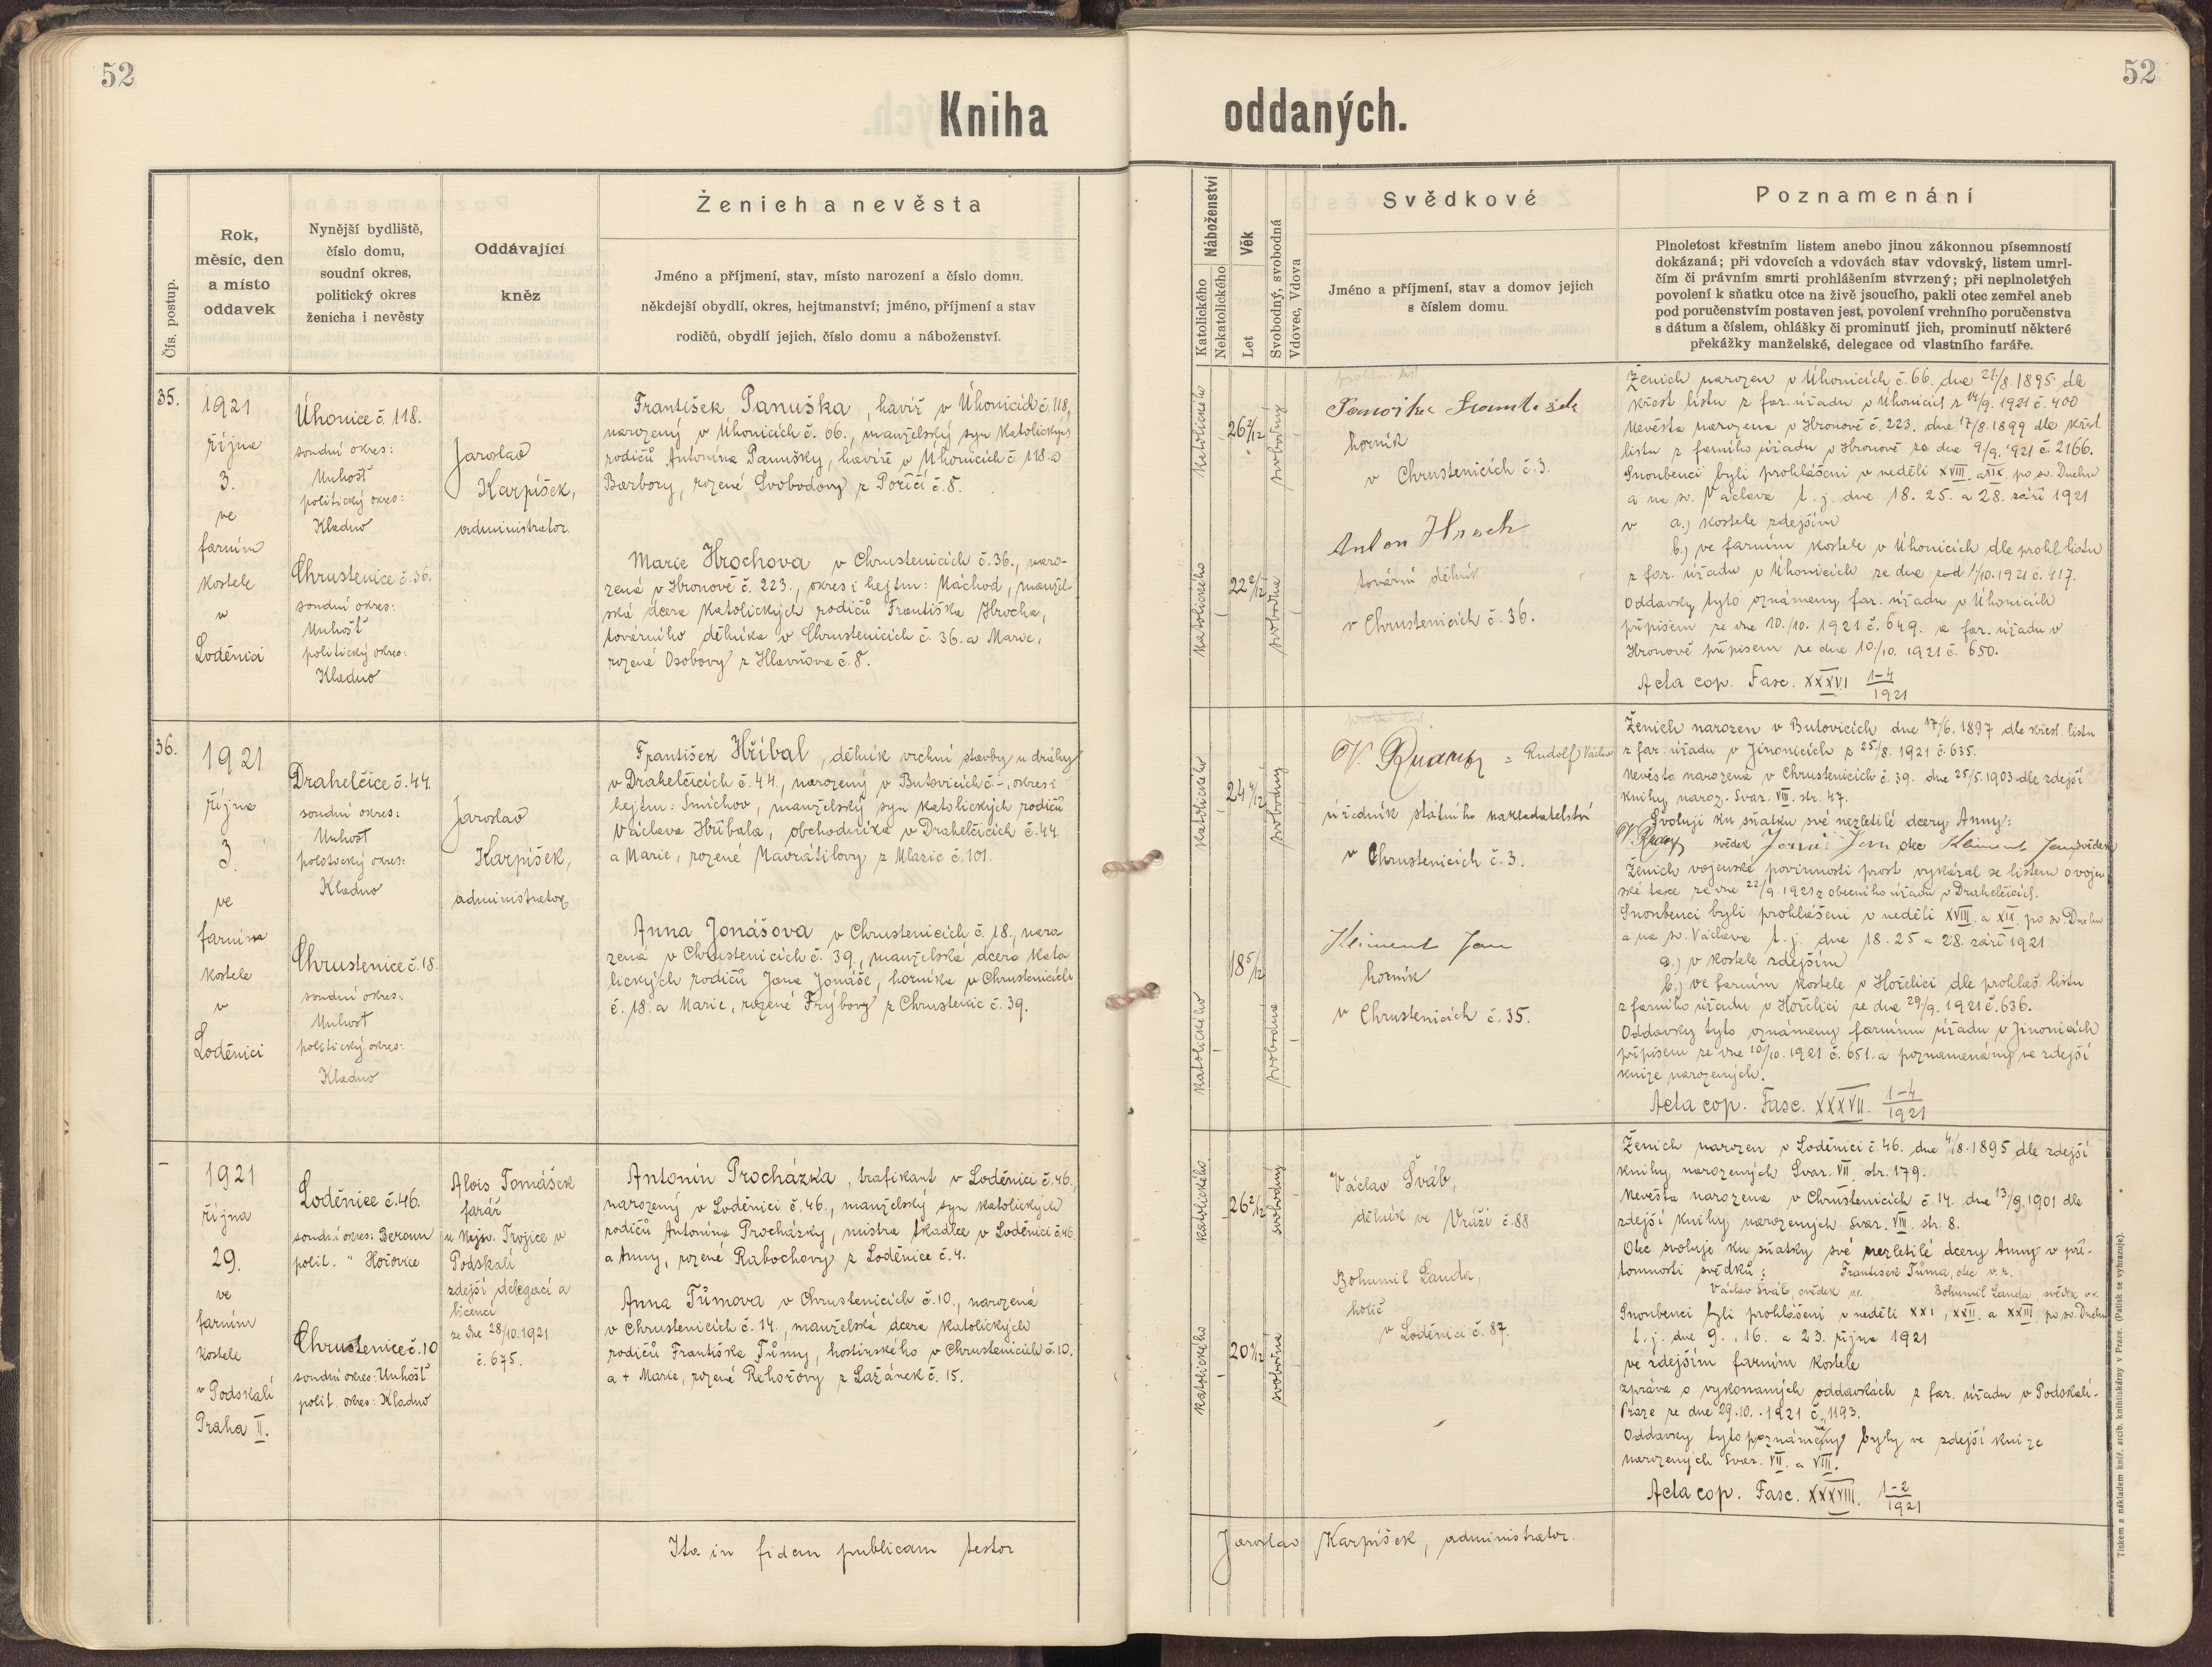 52
Kniha
Čís. postup.
Rok,
měsíc, den
a místo
oddavek
Nynější bydliště,
číslo domu,
soudní okres,
politický okres
ženicha i nevěsty
Oddávající
kněz
Ženich a nevěsta
Jméno a příjmení, stav, místo narození a číslo domu.
někdejší obydlí, okres, hejtmanství; jméno, příjmení a stav
rodičů, obydlí jejich, číslo domu a náboženství.
35.
1921
října
3.
ve
farním
kostele
v
Loděnici
Úhonice č. 118.
soudní okres:
Unhošť
politický okres:
Kladno
Chrustenice č. 36.
soudní okres:
Unhošť
politický okres:
Kladno
Jaroslav
Karpíšek,
administrator
František Panuška, havíř v Úhonicích č. 118,
narozený v Úhonicích č. 66., manželský syn katolických
rodičů Antonína Panušky, havíře v Úhonicích č. 118 a
Barbory, rozené Svobodovy z Poříčí č. 8.
Marie Hrochova v Chrustenicích č. 36., naro-
zená v Hronově č. 223., okres i hejtm: Náchod, manžel-
ská dcera katolických rodičů Františka Hrocha,
továrního dělníka v Chrustenicích č. 36. a Marie,
rozené Osobovy z Hlavňova č. 8.
36.
1921
října
3.
ve
farním
kostele
v
Loděnici
Drahelčice č. 44.
soudní okres:
Unhošť
politický okres:
Kladno
Chrustenice č. 18.
soudní okres:
Unhošť
politický okres:
Kladno
Jaroslav
Karpíšek,
administrator
František Hříbal, dělník vrchní stavby u dráhy
v Drahelčicích č. 44., narozený v Butovicích č. -, okres i
hejtm: Smíchov, manželský syn katolických rodičů
Václava Hříbala, obchodníka v Drahelčicích č. 44.
a Marie, rozené Navrátilovy z Mlazic č. 101.
Anna Jonášova v Chrustenicích č. 18., naro
zená v Chrustenicích č. 39., manželská dcera kato
lických rodičů Jana Jonáše, horníka v Chrustenicích
č. 18. a Marie, rozené Frýbovy z Chrustenic č. 39.
–
1921
října
29.
ve
farním
kostele
v Podskalí
Praha II.
Loděnice č. 46.
soudní okres: Beroun
polit. " Hořovice
Chrustenice č. 10
soudní okres: Unhošť
polit. okres: Kladno
Alois Tomášek
farář
u Nejsv. Trojice v
Podskalí
zdejší delegací a
licencí
ze dne 28/10. 1921
č. 675.
Antonín Procházka, trafikant v Loděnici č. 46.,
narozený v Loděnici č. 46., manželský syn katolických
rodičů Antonína Procházky, mistra tkadlce v Loděnici č. 46
a Anny, rozené Rabochovy z Loděnice č. 4.
Anna Tůmova v Chrustenicích č. 10., narozená
v Chrustenicích č. 14., manželská dcera katolických
rodičů Františka Tůmy, hostinského v Chrustenicích č. 10.
a + Marie, rozené Řehořovy z Lažánek č. 15.
Ita in fidem publicam testor
52
oddaných.
Náboženství
Katolického
Nekatolického
Věk
Let
Svobodný, svobodná
Vdovec, Vdova
Svědkové
Jméno a příjmení, stav a domov jejich
s číslem domu.
Poznamenání
Plnoletost křestním listem anebo jinou zákonnou písemností
dokázaná; při vdovcích a vdovách stav vdovský, listem umrl-
čím či právním smrti prohlášením stvrzený; při neplnoletých
povolení k sňatku otce na živě jsoucího, pakli otec zemřel aneb
pod poručenstvím postaven jest, povolení vrchního poručenstva
s dátum a číslem, ohlášky či prominutí jich, prominutí některé
překážky manželské, delegace od vlastního faráře.
katolického
26 2/12
svobodný
katolického
22 2/12
svobodna
horník
v Chrustenicích č. 3.
Anton Hroch
tovární dělník
v Chrustenicích č. 36.
Ženich narozen v Úhonicích č. 66. dne 21./8. 1895 dle
křest. listu z far. úřadu v Úhonicích z 14/9. 1921 č. 400
Nevěsta narozena v Hronově č. 223. dne 17/8. 1899 dle křest.
listu z farního úřadu v Hronově ze dne 9/9. 1921 č. 2166.
Snoubenci byli prohlášeni v neděli XVIII. a XIX. po sv. Duchu
a na sv. Václava t. j. dne 18. 25. a 28. září 1921
v a.) kostele zdejším
b.) ve farním kostele v Úhonicích dle prohl. listu
z far. úřadu v Úhonicích ze dne 1/10. 1921 č. 417.
Oddavky tyto oznámeny far. úřadu v Úhonicích
přípisem ze dne 10./10. 1921 č. 649. a far. úřadu v
Hronově přípisem ze dne 10/10. 1921 č. 650.
Acta cop. Fasc. XXXVI 1–4/1921
katolického
24 4/12
svobodný
katolického
18 5/12
svobodna
= Rudolf Václav
úředník státního nakladatelství
v Chrustenicích č. 3.
Kliment Jan
horník
v Chrustenicích č. 35.
Ženich narozen v Butovicích dne 17/6. 1897 dle křest. listu
z far. úřadu v Jinonicích z 25/8. 1921 č. 635.
Nevěsta narozena v Chrustenicích č. 39. dne 25/5. 1903 dle zdejší
knihy naroz. Svaz. VIII. str. 47.
Svoluji ku sňatku své nezletilé dcery Anny:
svědek Jonáš Jan otec Kliment Jan svědek
Ženich vojenské povinnosti prost vykázal se listem o vojen
ské taxe ze dne 22/9. 1921 z obecního úřadu v Drahelčicích.
Snoubenci byli prohlášeni v neděli XVIII. a XIX. po sv. Duchu
a na sv. Václava t. j. dne 18. 25 a 28. září 1921
a.) v kostele zdejším
b.) ve farním kostele v Hořelici dle prohláš. listu
z farního úřadu v Hořelici ze dne 29/9. 1921 č. 636.
Oddavky tyto oznámeny farnímu úřadu v Jinonicích
přípisem ze dne 10/10. 1921 č. 651. a poznamenány ve zdejší
knize narozených.
Acta cop. Fasc. XXXVII. 1–4/1921
katolického
26 2/12
svobodný
katolického
20 1/12
svobodná
Václav Šváb,
dělník ve Vráži č. 88
Bohumil Landa,
holič
v Loděnici č. 87.
Ženich narozen v Loděnici č. 46. dne 4/8. 1895 dle zdejší
knihy narozených Svaz. VII. str. 179.
Nevěsta narozena v Chrustenicích č. 14. dne 13/9. 1901 dle
zdejší knihy narozených Svaz. VIII. str. 8.
Otec svoluje ku sňatky své nezletilé dcery Anny v pří-
tomnosti svědků: František Tůma, otec v. r.
Václav Šváb, svědek v. r. Bohumil Landa, svědek v. r.
Snoubenci byli prohlášeni v neděli XXI, XXII. a XXIII. po sv. Duchu
t. j. dne 9., 16. a 23. října 1921
ve zdejším farním kostele
Zpráva o vykonaných oddavkách z far. úřadu v Podskalí-
Praze ze dne 29. 10. 1921 č. 1193.
Oddavky tyto poznamenány byly ve zdejší knize
narozených Svaz. VII. a VIII.
Acta cop. Fasc. XXXVIII. 1–2/1921
Jaroslav Karpíšek, administrator.
Tiskem a nákladem kníž. arcib. knihtiskárny v Praze. (Patisk se vyhrazuje).